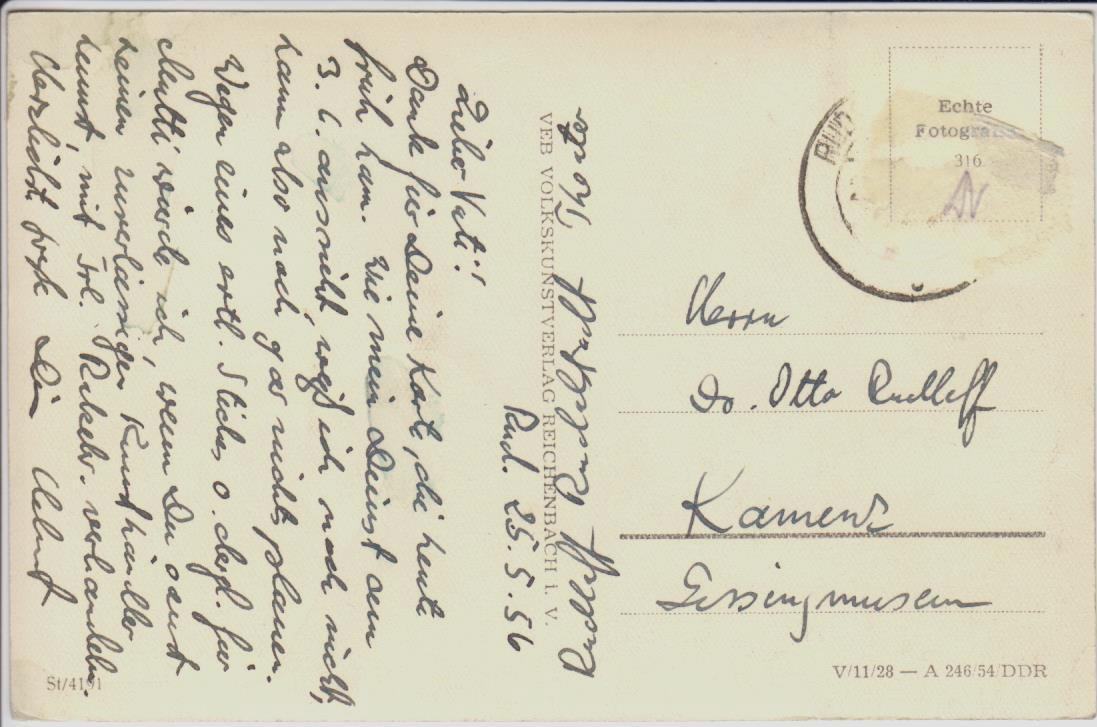 Rud. 25.5.56
Lieber Vati!
Danke für Deine Karte, die heute
früh kam. Wie mein Dienst am
3. 6. aussieht, weiß ich noch nicht,
kann also noch gar nichts planen.
Wegen eines evtl. Stiches o. dergl. für
Mutti würde ich, wenn Du sonst
keinen zuverlässigen Kunsthändler
kennst, mit Frl. verhandeln.
Herzlichst grüßt Dein Helmut
VEB VOLKSKUNSTVERLAG REICHENBACH i. V.
Echte
Fotografie
316
Herrn
Dr. Otto
Kamenz
Lessingmuseum
St/4191
V/11/28 — A 246/54/DDR